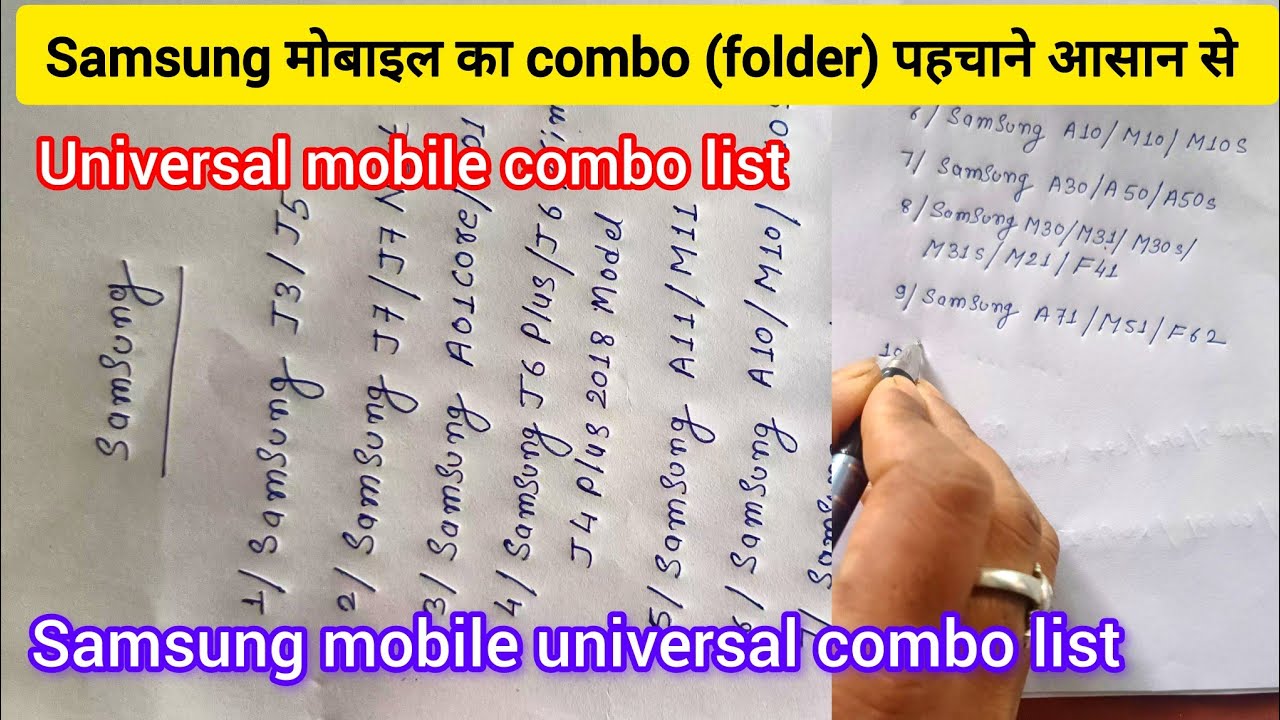 Samsung मोबाइल का combo (folder) पहचाने आसान से
Universal mobile combo list
Samsung
1/ Samsung J3/J5
2/ Samsung J7/J7 N
3/ Samsung A01core/ 01
4/ Samsung J6 Plus/J6
J4 Plus 2018 Model
5/ Samsung A11/M11
6/ Samsung A10/M10/
7/ Samsu
6/ Samsung A10/M10/M10s
7/ Samsung A30/A50/A50s
8/ Samsung M30/M31/M30s/
M31s/M21/F41
9/ Samsung A71/M51/F62
Samsung mobile universal combo list